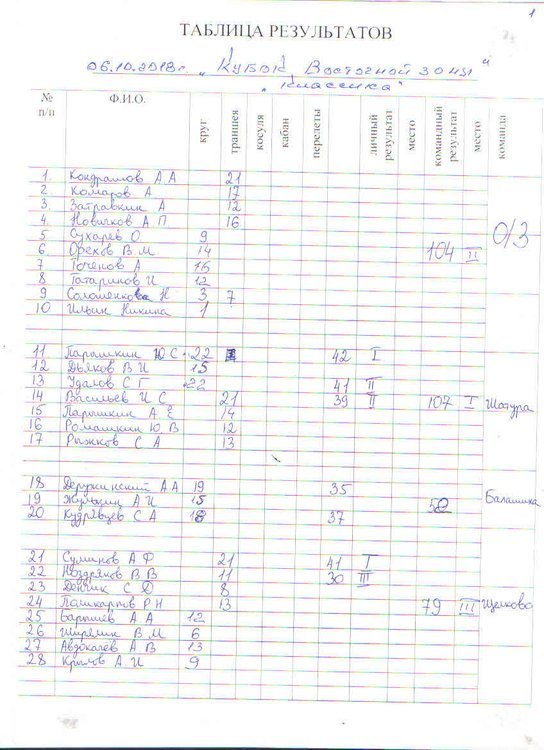 1
ТАБЛИЦА РЕЗУЛЬТАТОВ
06.10.2018г. "Кубок Восточной зоны"
"Классика"
№ п/п Ф.И.О. круг траншея косуля кабан перелеты личный результат место командный результат место команда
1. Кондрашов А А 21
2. Комаров А 17
3. Затравкин А 12
4. Новичков А.П. 16
5 Сухарев О. 9 О/З
6 Орехов В.М 14 104 II
7 Точенов А 15
8 Татаринов И 12
9 Соломенкова Н 3 7
10 Ильин Никита 1
11 Парышкин Ю С 22 42 I
12 Дьяков В И 15
13 Удалов С Г 22 41 II
14 Васильев И С 21 39 II 107 I Шатура
15 Парышкин А Е 14
16 Ромашкин Ю В 12
17 Рыжков С А 13
18 Деружинский А А 19 35
19 Жулькин А И 15 52 Балашиха
20 Кудрявцев С А 18 37
21 Суминов А Ф 21 41 I
22 Ноздряков В В 11 30 III
23 С 8
24 Р Н 13 79 III Щелково
25 Барышев А А 12
26 В М 6
27 А В 13
28 Крылов А И 9